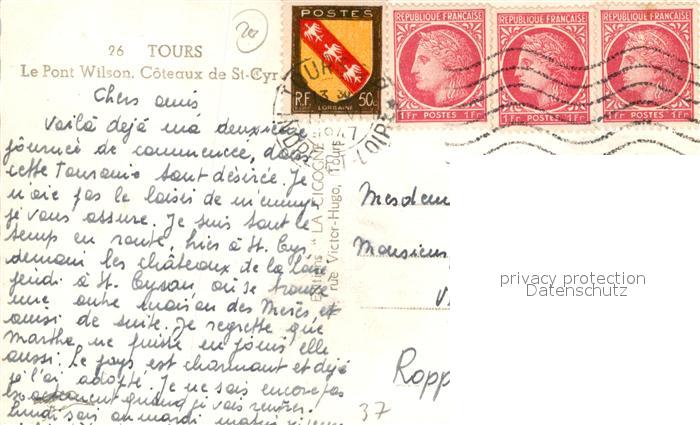 20
26 TOURS
Le Pont Wilson. Côteaux de St-Cyr
POSTES
R.F. 50c
LORRAINE
REPUBLIQUE FRANÇAISE
1Fr POSTES 1Fr
REPUBLIQUE FRANÇAISE
1Fr POSTES 1Fr
REPUBLIQUE FRANÇAISE
1Fr POSTES 1Fr
Chers amis
Voilà déjà ma deuxième
journée de commencée, dans
cette Touraine tant désirée. Je
n'aie pas le loisir de m'ennuyer
je vous assure. Je suis tout le
temps en route, hier à St. Cyr,
demain les châteaux de la Loire
jeudi à St. où se trouve
une autre maison des et
ainsi de suite. Je regrette que
Marthe ne puisse en jouir elle
aussi. Le pays est charmant et déjà
je l'ai adopté. Je ne sais encore pas
quand je vais rentrer.
lundi soir ou mardi matin
Editions "LA CIGOGNE"
rue Victor-Hugo, Tours
Mesdem
Monsieur
V
Ropp
37
privacy protection
Datenschutz